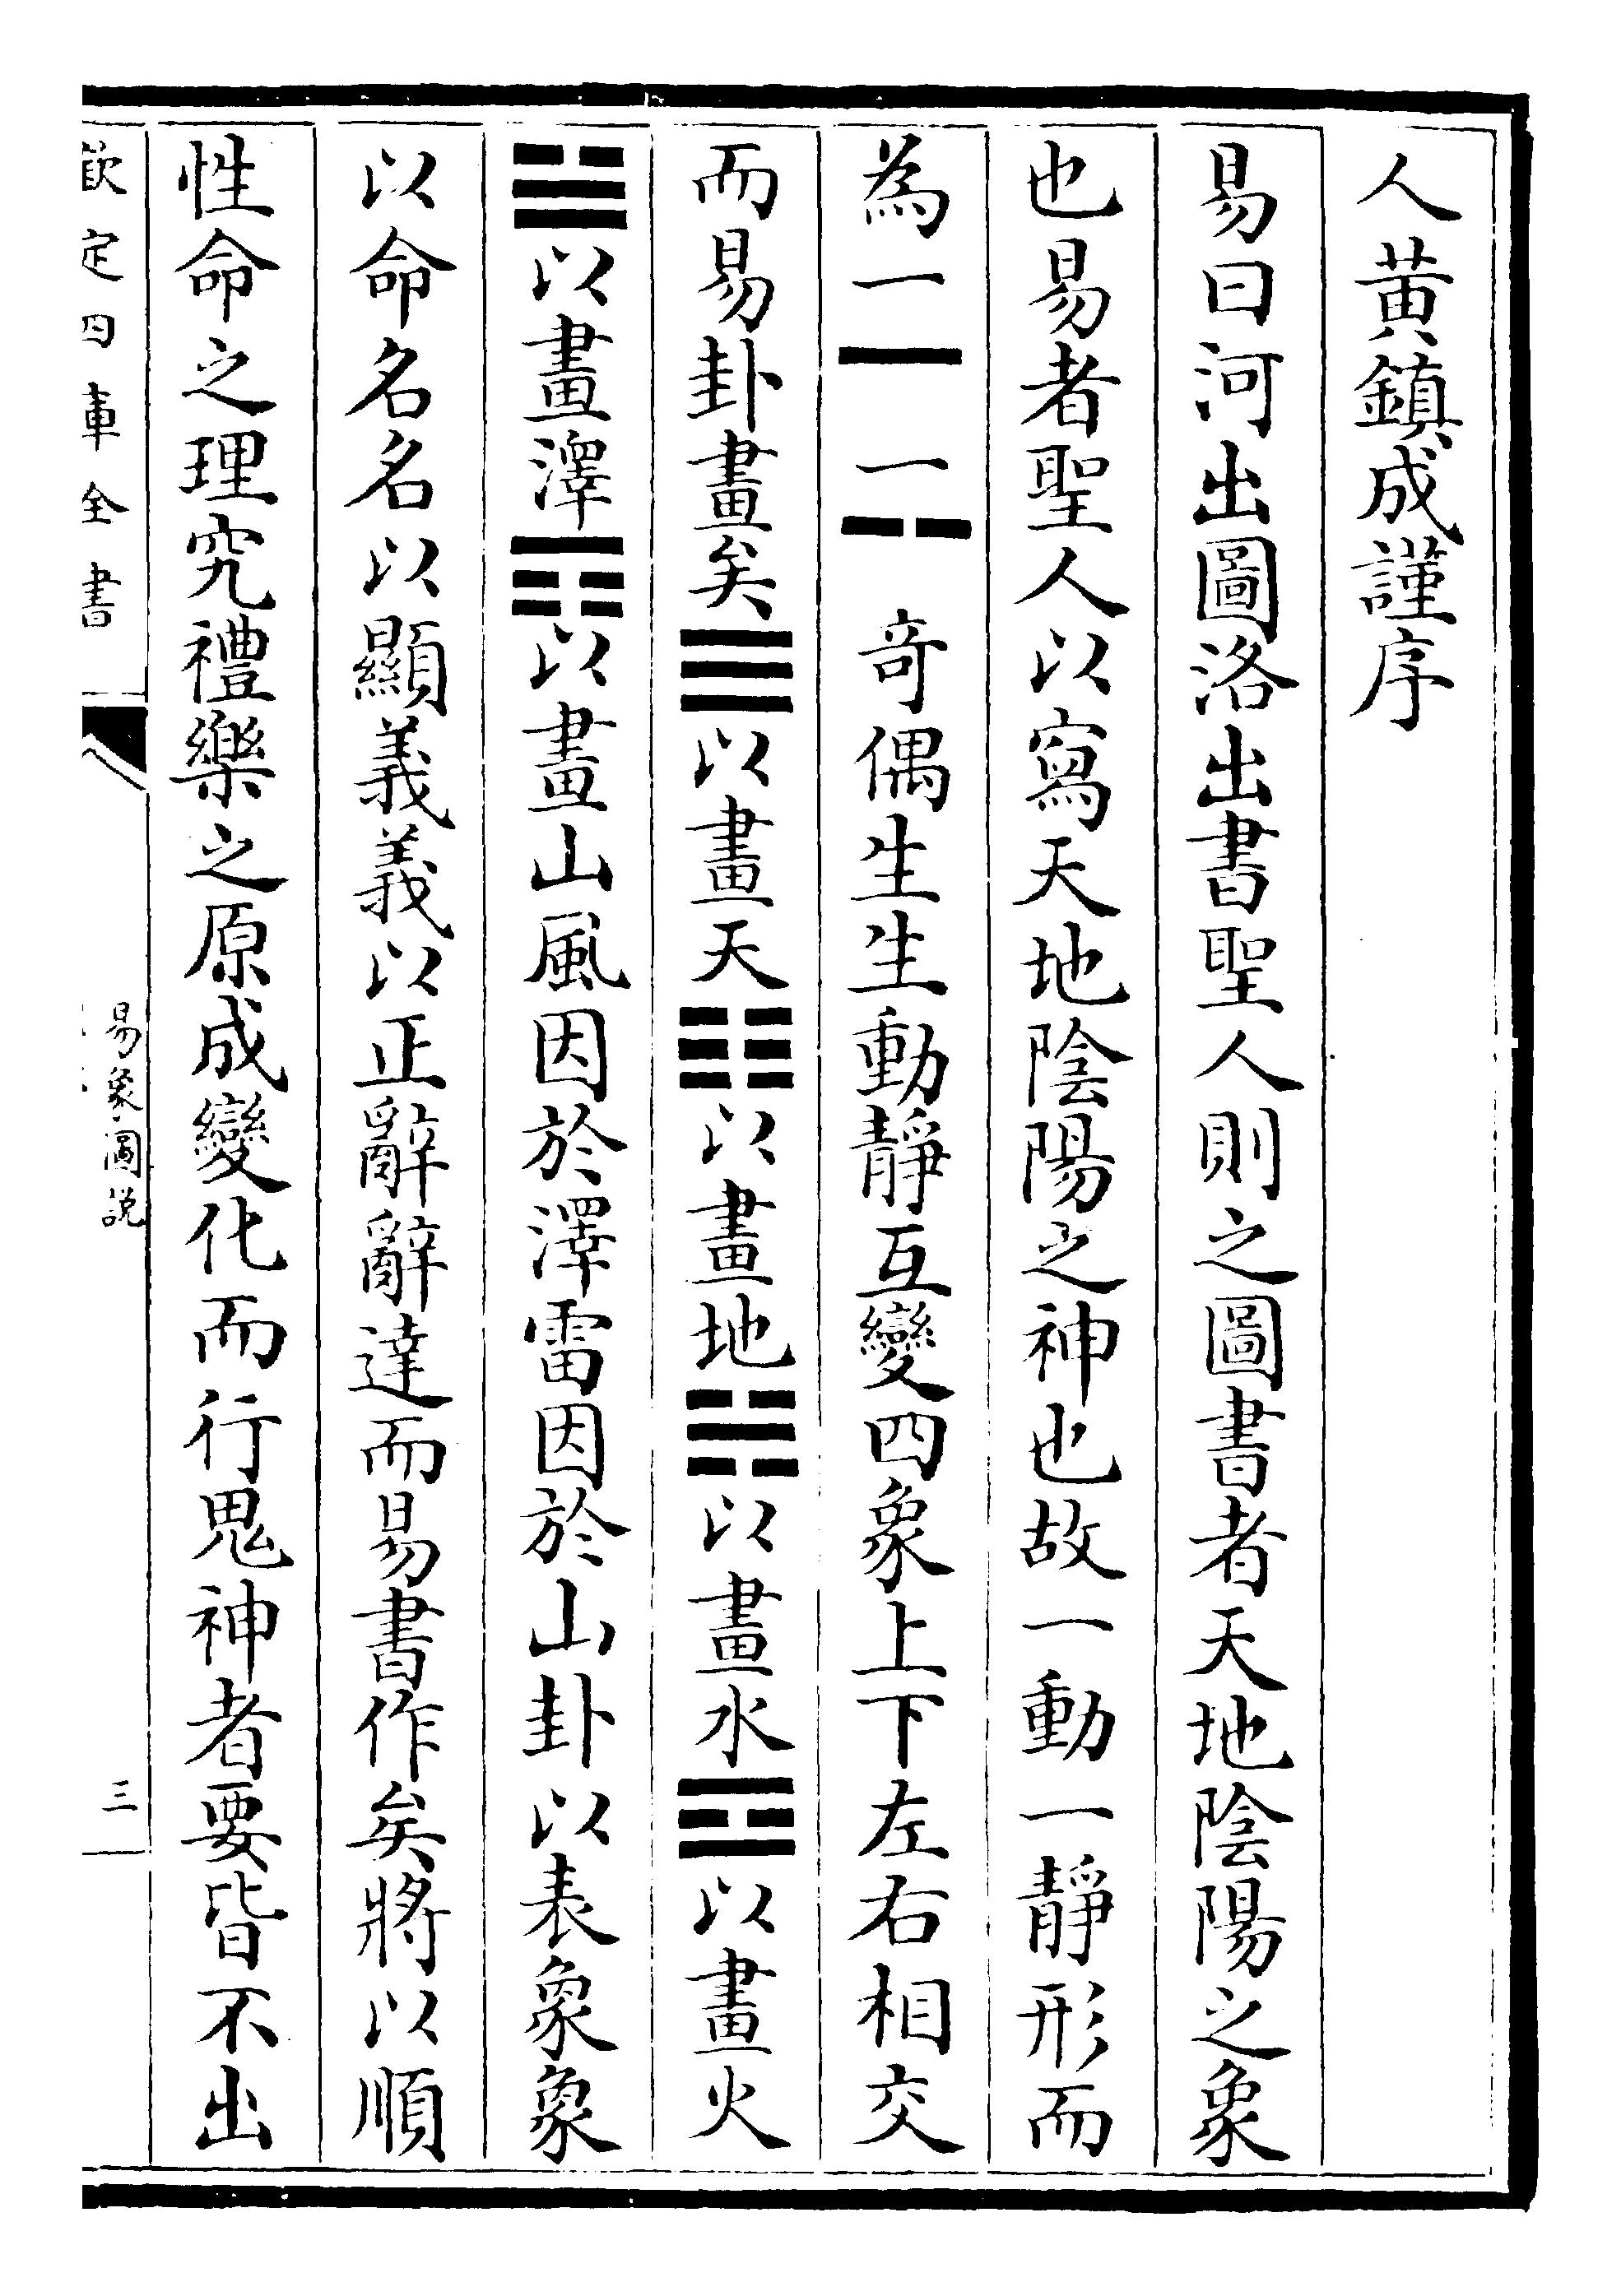 人黄鎮成謹序
易曰河出圖洛出書聖人則之圖書者天地陰陽之象
也易者聖人以寫天地陰陽之神也故一動一靜形而
為一⚊一⚋奇偶生生動靜互變四象上下左右相交
而易卦畫矣☰以畫天☷以畫地☵以畫水☲以畫火
☱以畫澤☶以畫山風因於澤雷因於山卦以表象象
以命名名以顯義義以正辭辭達而易書作矣將以順
性命之理究禮樂之原成變化而行鬼神者要皆不出
欽定四庫全書
易象圖說
三